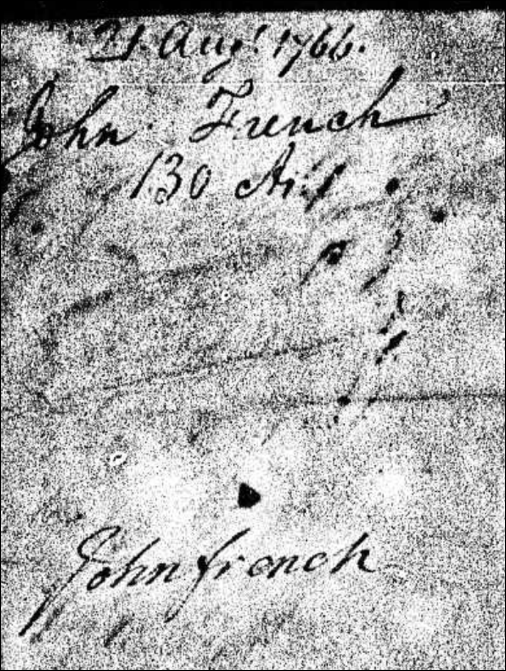 21. Augt. 1766.
John French
130 As
John french